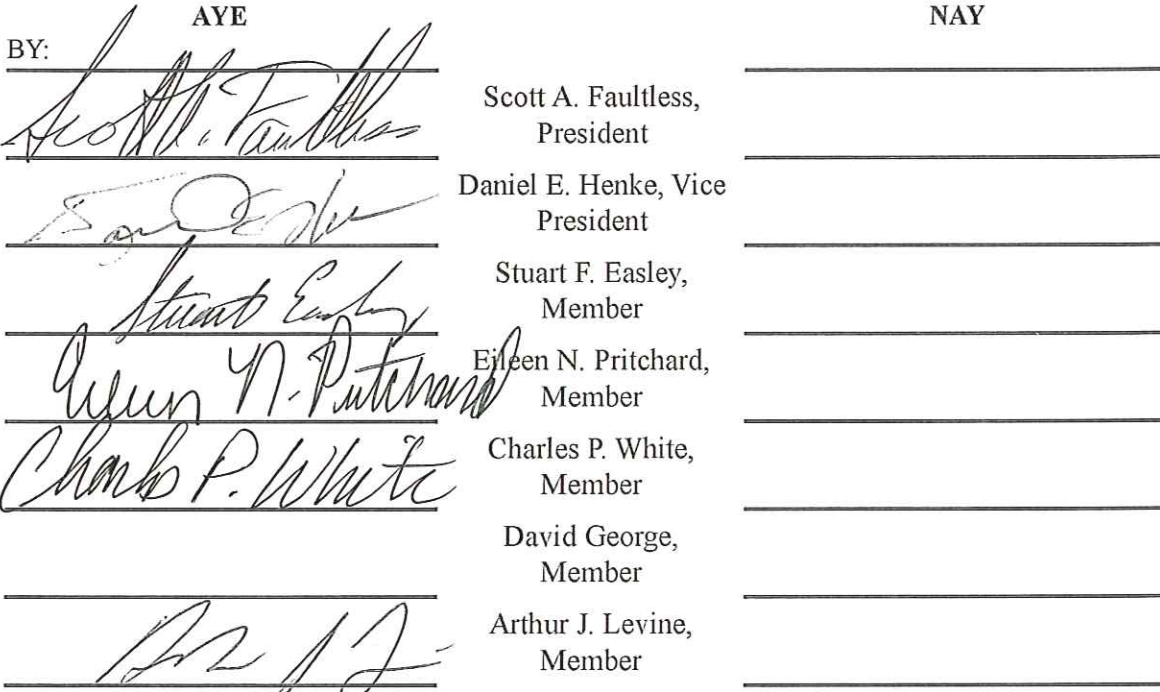 AYE NAY
BY:
Scott A. Faultless
Scott A. Faultless,
President
Daniel E. Henke, Vice
President
Stuart Easley
Stuart F. Easley,
Member
Eileen N. Pritchard
Eileen N. Pritchard,
Member
Charles P. White
Charles P. White,
Member
David George,
Member
Arthur J. Levine,
Member